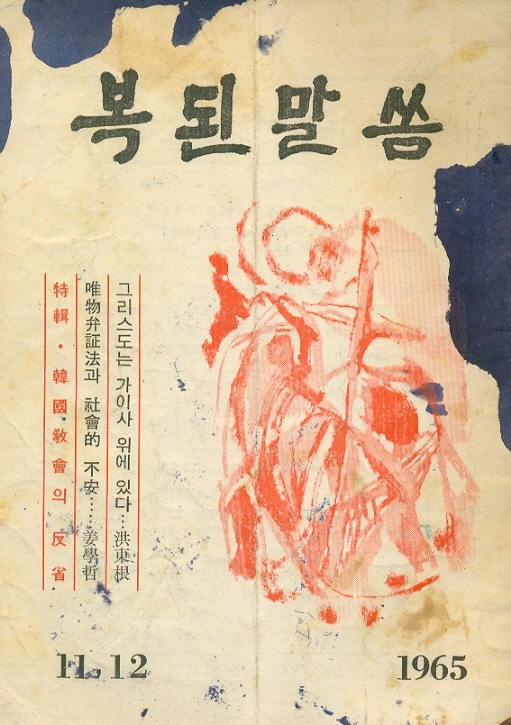 복된말씀
그리스도는 가이사 위에 있다…洪東根
唯物弁証法과 社會的 不安……姜學哲
特輯・韓國敎會의 反省
11, 12
1965